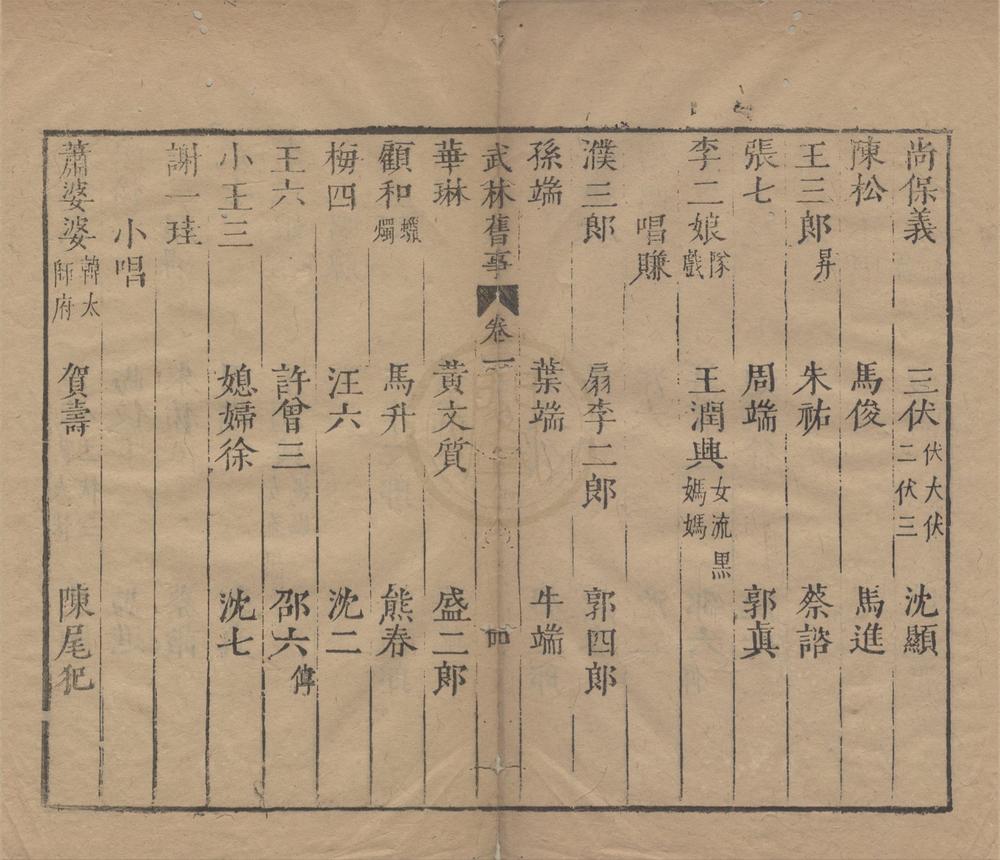 尚保義　三伏伏大伏二伏三　沈顯
陳松　馬俊　馬進
王三郎昇　朱祐　蔡諮
張七　周端　郭眞
李二娘隊戲　王潤興女流黑媽媽
唱賺
濮三郎　扇李二郎　郭四郎
孫端　葉端　牛端
武林舊事　卷一
華琳　黃文質　盛二郎
顧和蠟燭　馬升　熊春
梅四　汪六　沈二
王六　許曾三　邵六伟
小王三　媳婦徐　沈七
謝一珪
小唱
蕭婆婆韓太師府　賀壽　陳尾犯